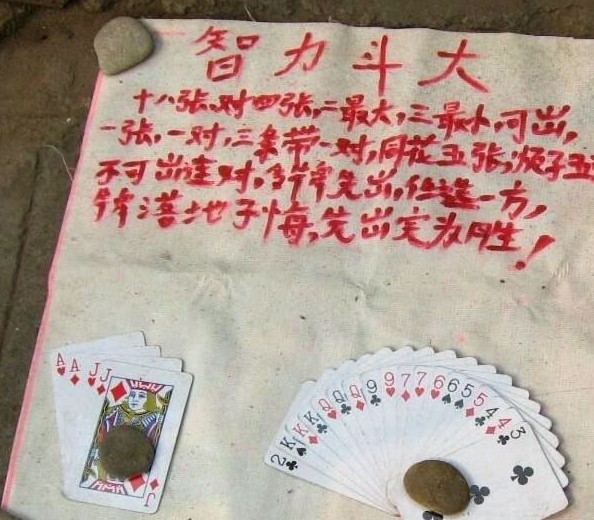 智力斗大
十八张对四张,二最大,三最小,可出,
一张,一对,三条带一对,同花五张,顺子五
不可出连对,牌先出,任选一方,
牌落地悔,先出完为胜!
A A J J
J
2 K K K Q Q Q 9 9 7 7 6 6 5 4 4 3